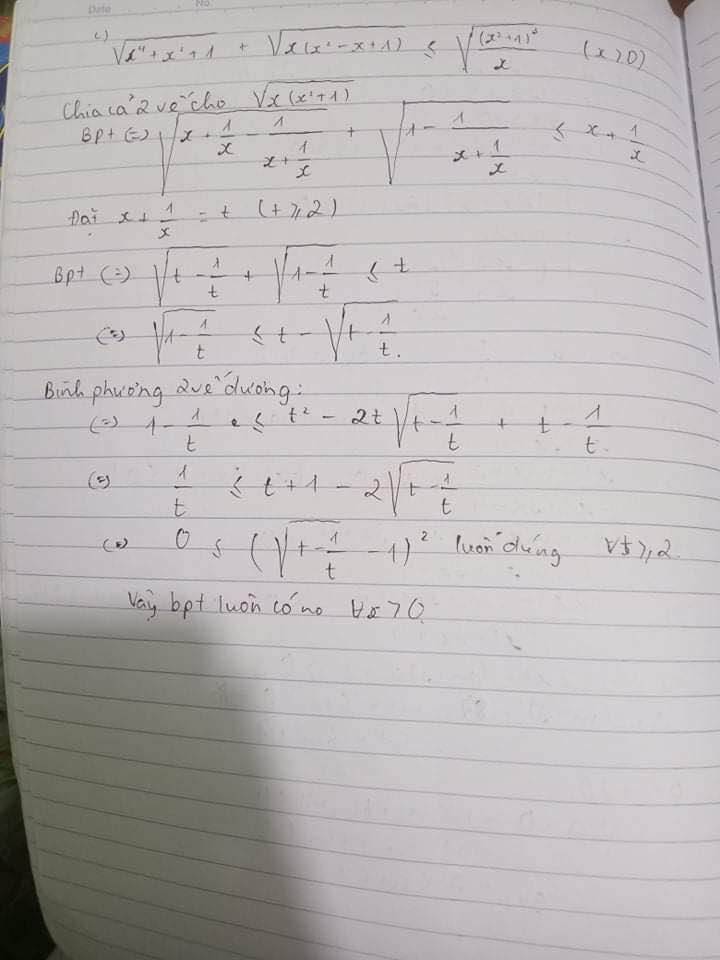 Date No.
c) √(x⁴+x²+1) + √(x(x²-x+1)) ≤ √((x²+1)³/x) (x>0)
Chia cả 2 vế cho √(x(x²+1))
Bpt (=) √(x + 1/x - 1/(x + 1/x)) + √(1 - 1/(x + 1/x)) ≤ x + 1/x
Đặt x + 1/x = t (t ≥ 2)
Bpt (=) √(t - 1/t) + √(1 - 1/t) ≤ t
(=) √(1 - 1/t) ≤ t - √(t - 1/t).
Bình phương 2 vế dương:
(=) 1 - 1/t ≤ t² - 2t√(t - 1/t) + t - 1/t
(=) 1/t ≤ t + 1 - 2√(t - 1/t)
(=) 0 ≤ (√(t - 1/t) - 1)² luôn đúng ∀t ≥ 2.
Vậy bpt luôn có no ∀x > 0.